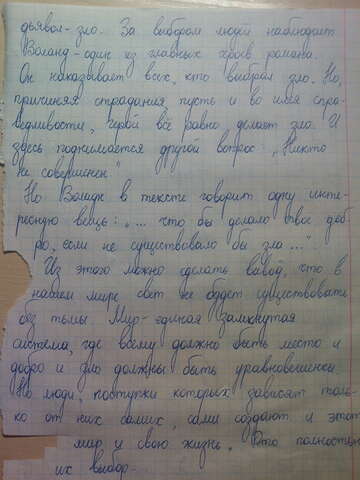 дьявол - зло. За выбором людей наблюдает
Воланд - один из главных героев романа.
Он наказывает всех, кто выбрал зло. Но,
причиняя страдания, пусть и во имя спра-
ведливости, герой всё равно делает зло. И
здесь поднимается другой вопрос: „Никто
не совершенен"
Но Воланд в тексте говорит одну инте-
ресную вещь: „... что бы делало твое доб-
ро, если не существовало бы зло..."
Из этого можно сделать вывод, что в
нашем мире свет не будет существовать
без тьмы. Мир - единая замкнутая
система, где всему должно быть место и
добро и зло должны быть уравновешенны.
Но люди, поступки которых зависят толь-
ко от них самих, сами создают и этот
мир и свою жизнь. Это полностью
их выбор.